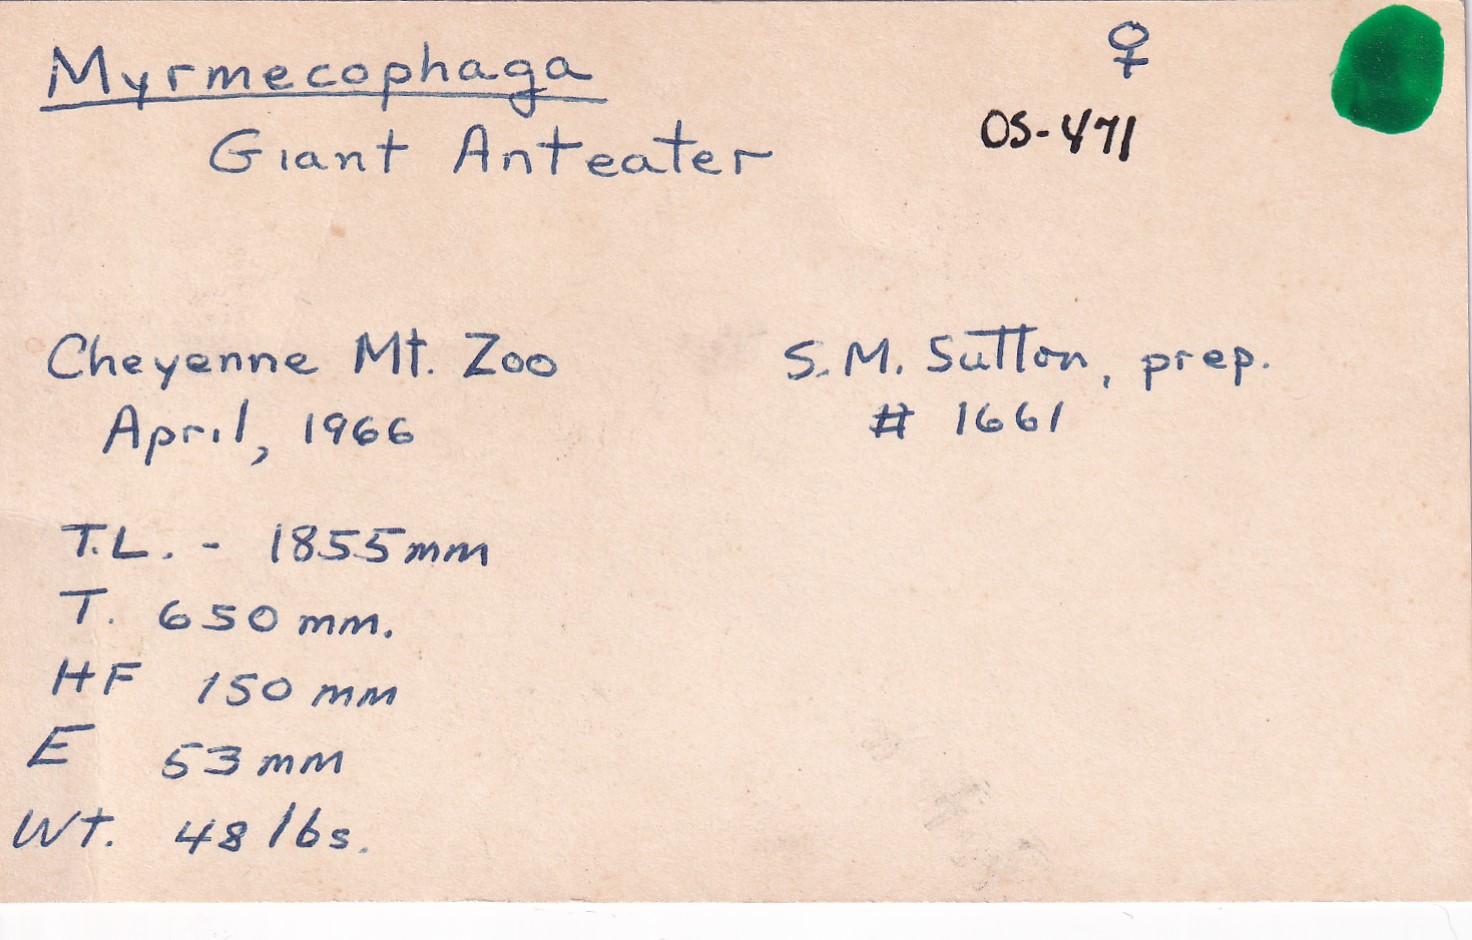 Myrmecophaga ♀
OS-471
Giant Anteater
Cheyenne Mt. Zoo
April, 1966
S.M. Sutton, prep.
# 1661
T.L. - 1855mm
T. 650 mm.
HF 150 mm
E 53 mm
Wt. 48 lbs.